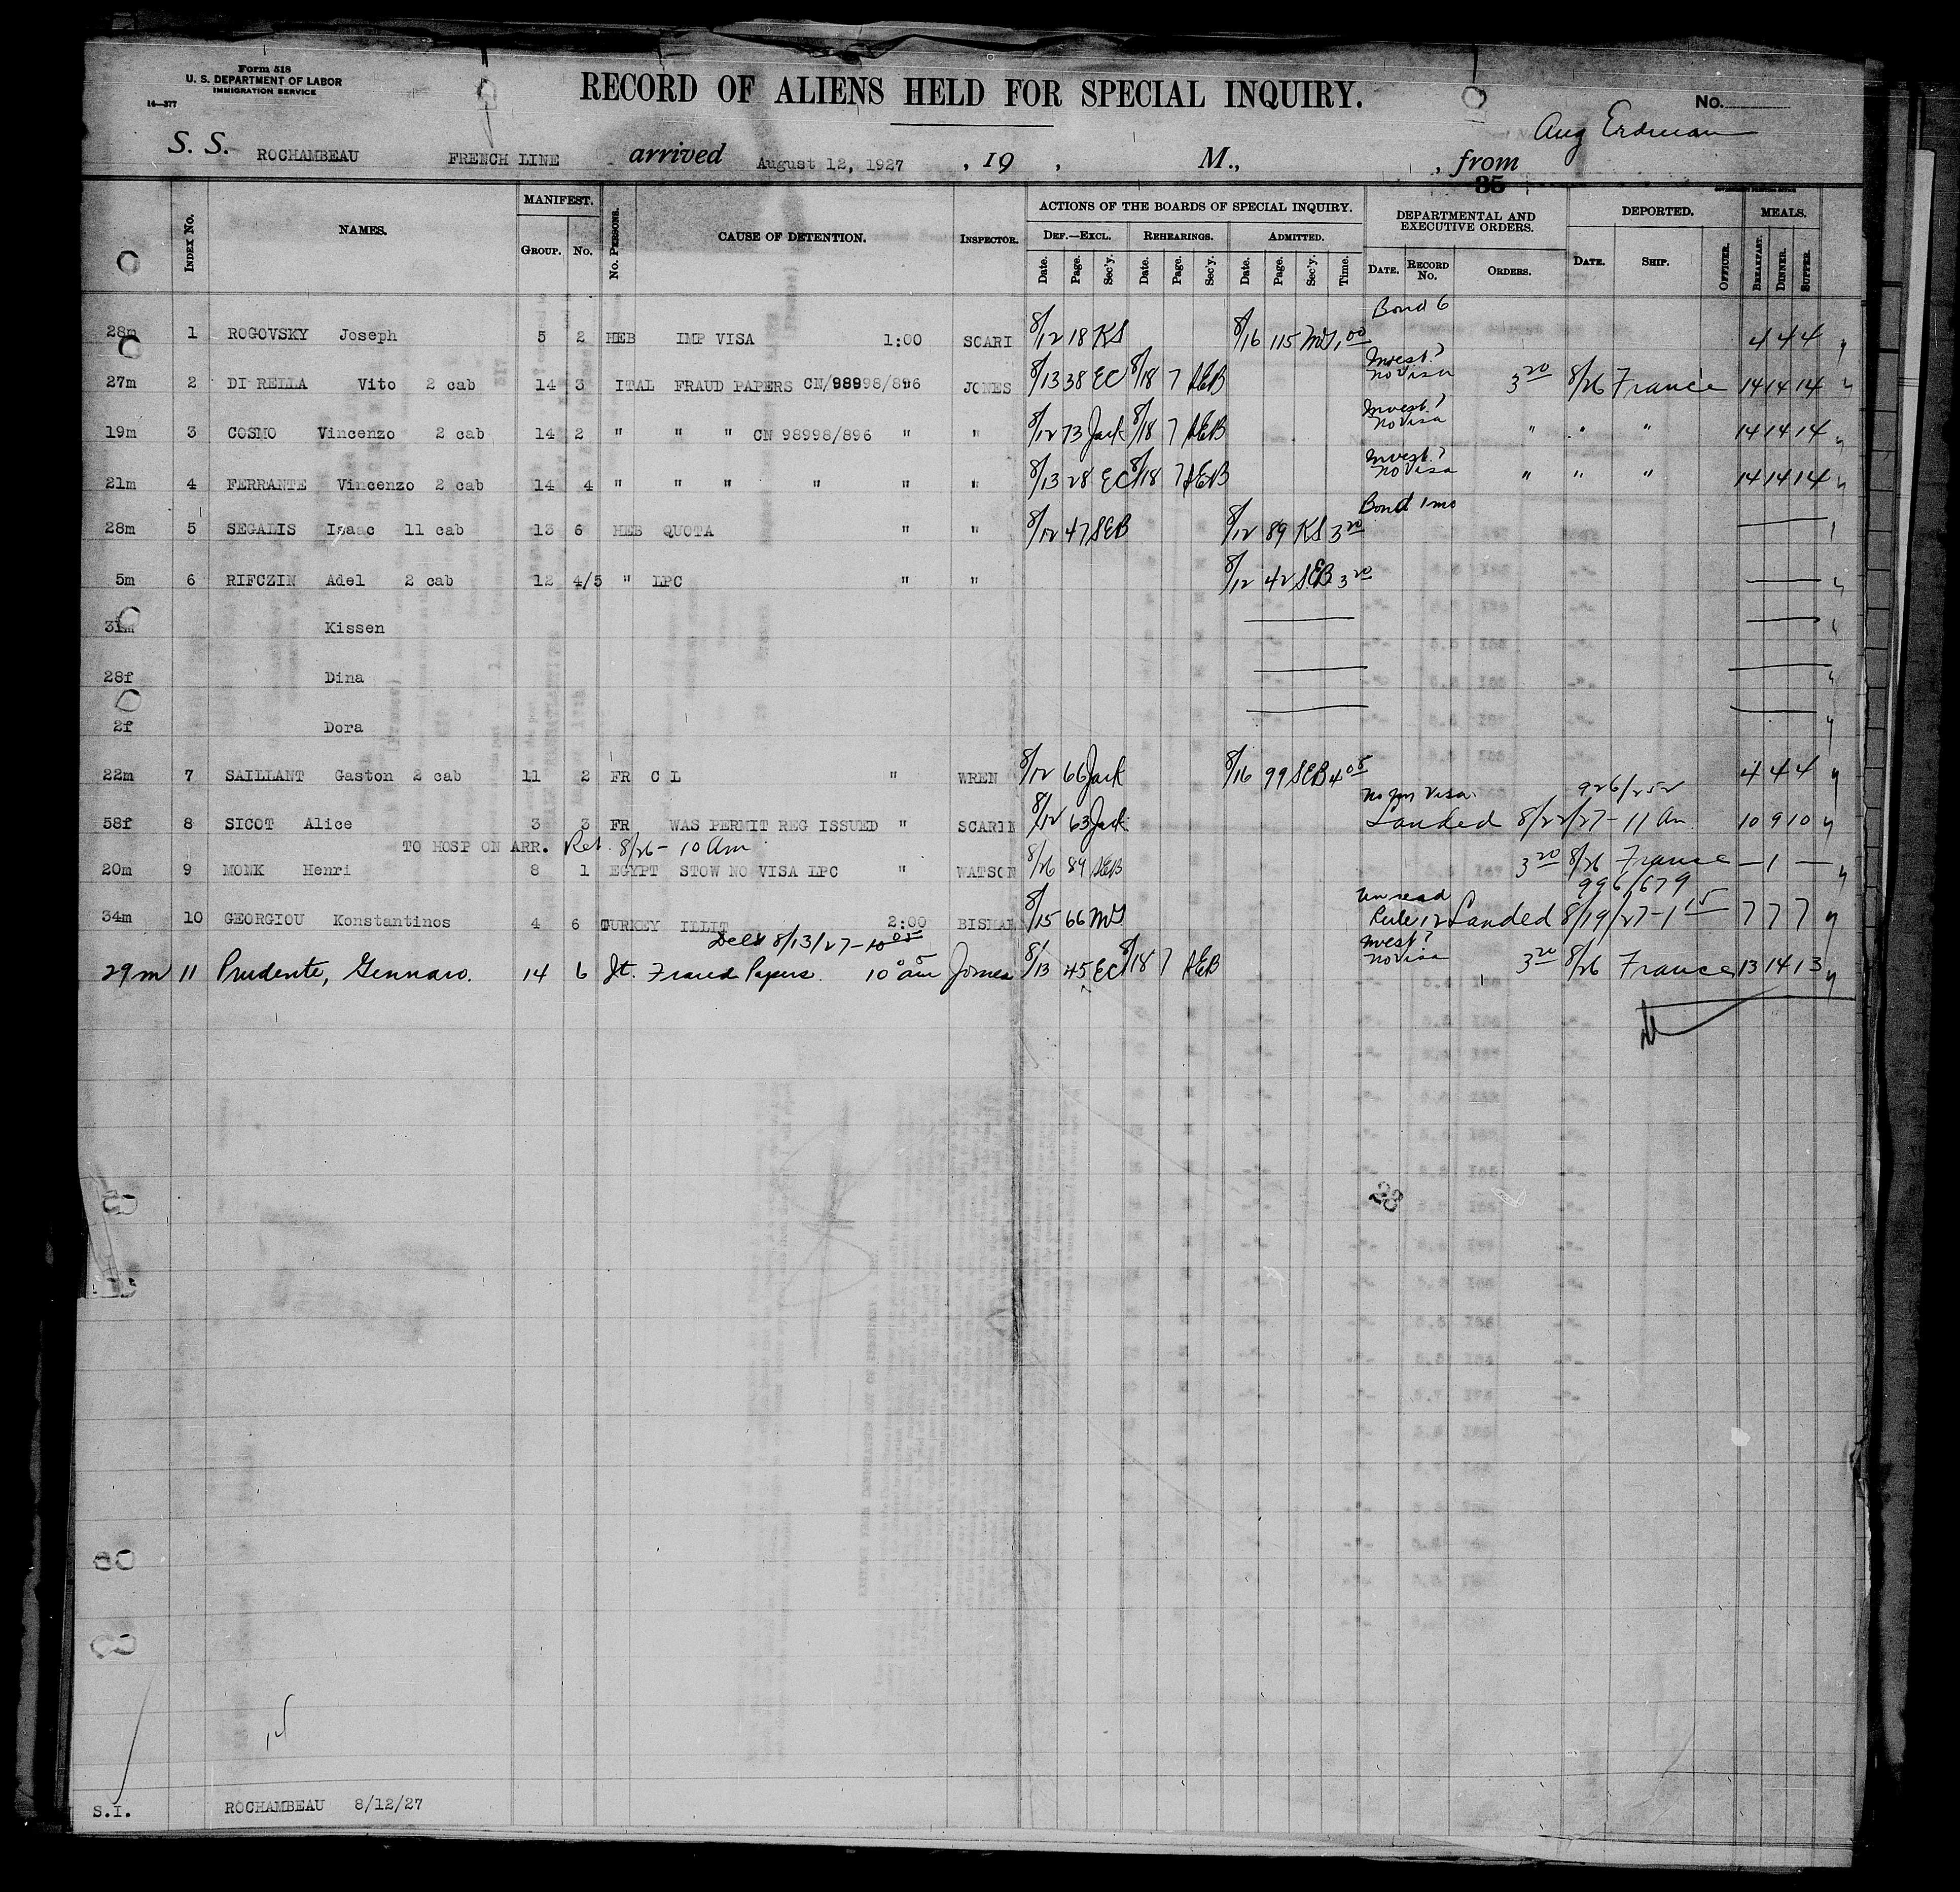 Form 518
U. S. DEPARTMENT OF LABOR
IMMIGRATION SERVICE
14—377
RECORD OF ALIENS HELD FOR SPECIAL INQUIRY.
No.
Aug Erdman
S. S. ROCHAMBEAU FRENCH LINE arrived August 12, 1927 , 19 , M., , from
35
GOVERNMENT PRINTING OFFICE
Index No. NAMES. MANIFEST. Group. No. No. Persons. CAUSE OF DETENTION. Inspector. ACTIONS OF THE BOARDS OF SPECIAL INQUIRY. Def.—Excl. Date. Page. Sec'y. Rehearings. Date. Page. Sec'y. Admitted. Date. Page. Sec'y. Time. DEPARTMENTAL AND EXECUTIVE ORDERS. Date. Record No. Orders. DEPORTED. Date. Ship. Officer. MEALS. Breakfast. Dinner. Supper.
Bond 6
28m 1 ROGOVSKY Joseph 5 2 HEB IMP VISA 1:00 SCARI 8/12 18 KS 8/16 115 MG 1 00 4 4 4
Invest?
No Visa
27m 2 DI RELLA Vito 2 cab 14 3 ITAL FRAUD PAPERS CN/98998/896 JONES 8/13 38 EC 8/18 7 SEB 3 20 8/26 France 14 14 14
Invest?
No Visa
19m 3 COSMO Vincenzo 2 cab 14 2 " " " CN 98998/896 " " 8/12 73 Jack 8/18 7 SEB " " " 14 14 14
Invest?
No Visa
21m 4 FERRANTE Vincenzo 2 cab 14 4 " " " " " " 8/13 28 EC 8/18 7 SEB " " " 14 14 14
Bond 1 mo
28m 5 SEGALIS Isaac 11 cab 13 6 HEB QUOTA " " 8/12 47 SEB 8/12 89 KS 3 20
5m 6 RIFCZIN Adel 2 cab 12 4/5 " LPC " " 8/12 42 SEB 3 20
31m Kissen
28f Dina
2f Dora
22m 7 SAILLANT Gaston 2 cab 11 2 FR C L " WREN 8/12 66 Jack 8/16 99 SEB 4 05 4 4 4
No Visa 926/252
58f 8 SICOT Alice 3 3 FR WAS PERMIT REG ISSUED " SCARIN 8/12 63 Jack Landed 8/22/27 - 11 am 10 9 10
TO HOSP ON ARR. Ret. 8/26 - 10 am
20m 9 MONK Henri 8 1 EGYPT STOW NO VISA LPC " WATSON 8/26 84 SEB 3 20 8/26 France — 1 —
996/679
Unread
34m 10 GEORGIOU Konstantinos 4 6 TURKEY ILLIT 2:00 BISHAR 8/15 66 MG Rule 12 Landed 8/19/27 - 1 15 7 7 7
8/13/27 - 10 05
Invest?
No Visa
29m 11 Prudente, Gennaro. 14 6 It. Fraud Papers. 10 05 am Jones 8/13 45 EC 8/18 7 SEB 3 20 8/26 France 13 14 13
23
S.I. ROCHAMBEAU 8/12/27